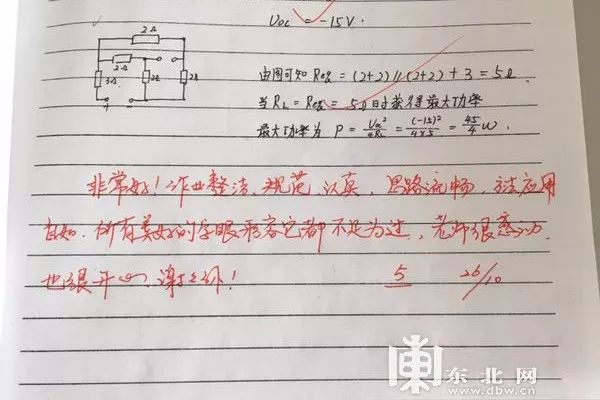 Uoc = -15V.
2Ω
2Ω
3Ω
2Ω
2Ω
由图可知 Req = (2+2)//(2+2) + 3 = 5Ω
当 RL = Req = 5Ω 时获得最大功率
最大功率为 P = Uoc²/4RL = (-15)²/4×5 = 45/4 W.
非常好！作业整洁、规范、认真，思路流畅，方法应用
自如，所有美好的字眼形容它都不足为过，老师很感动
也很开心，谢
5 26/10
東北网
www.dbw.cn